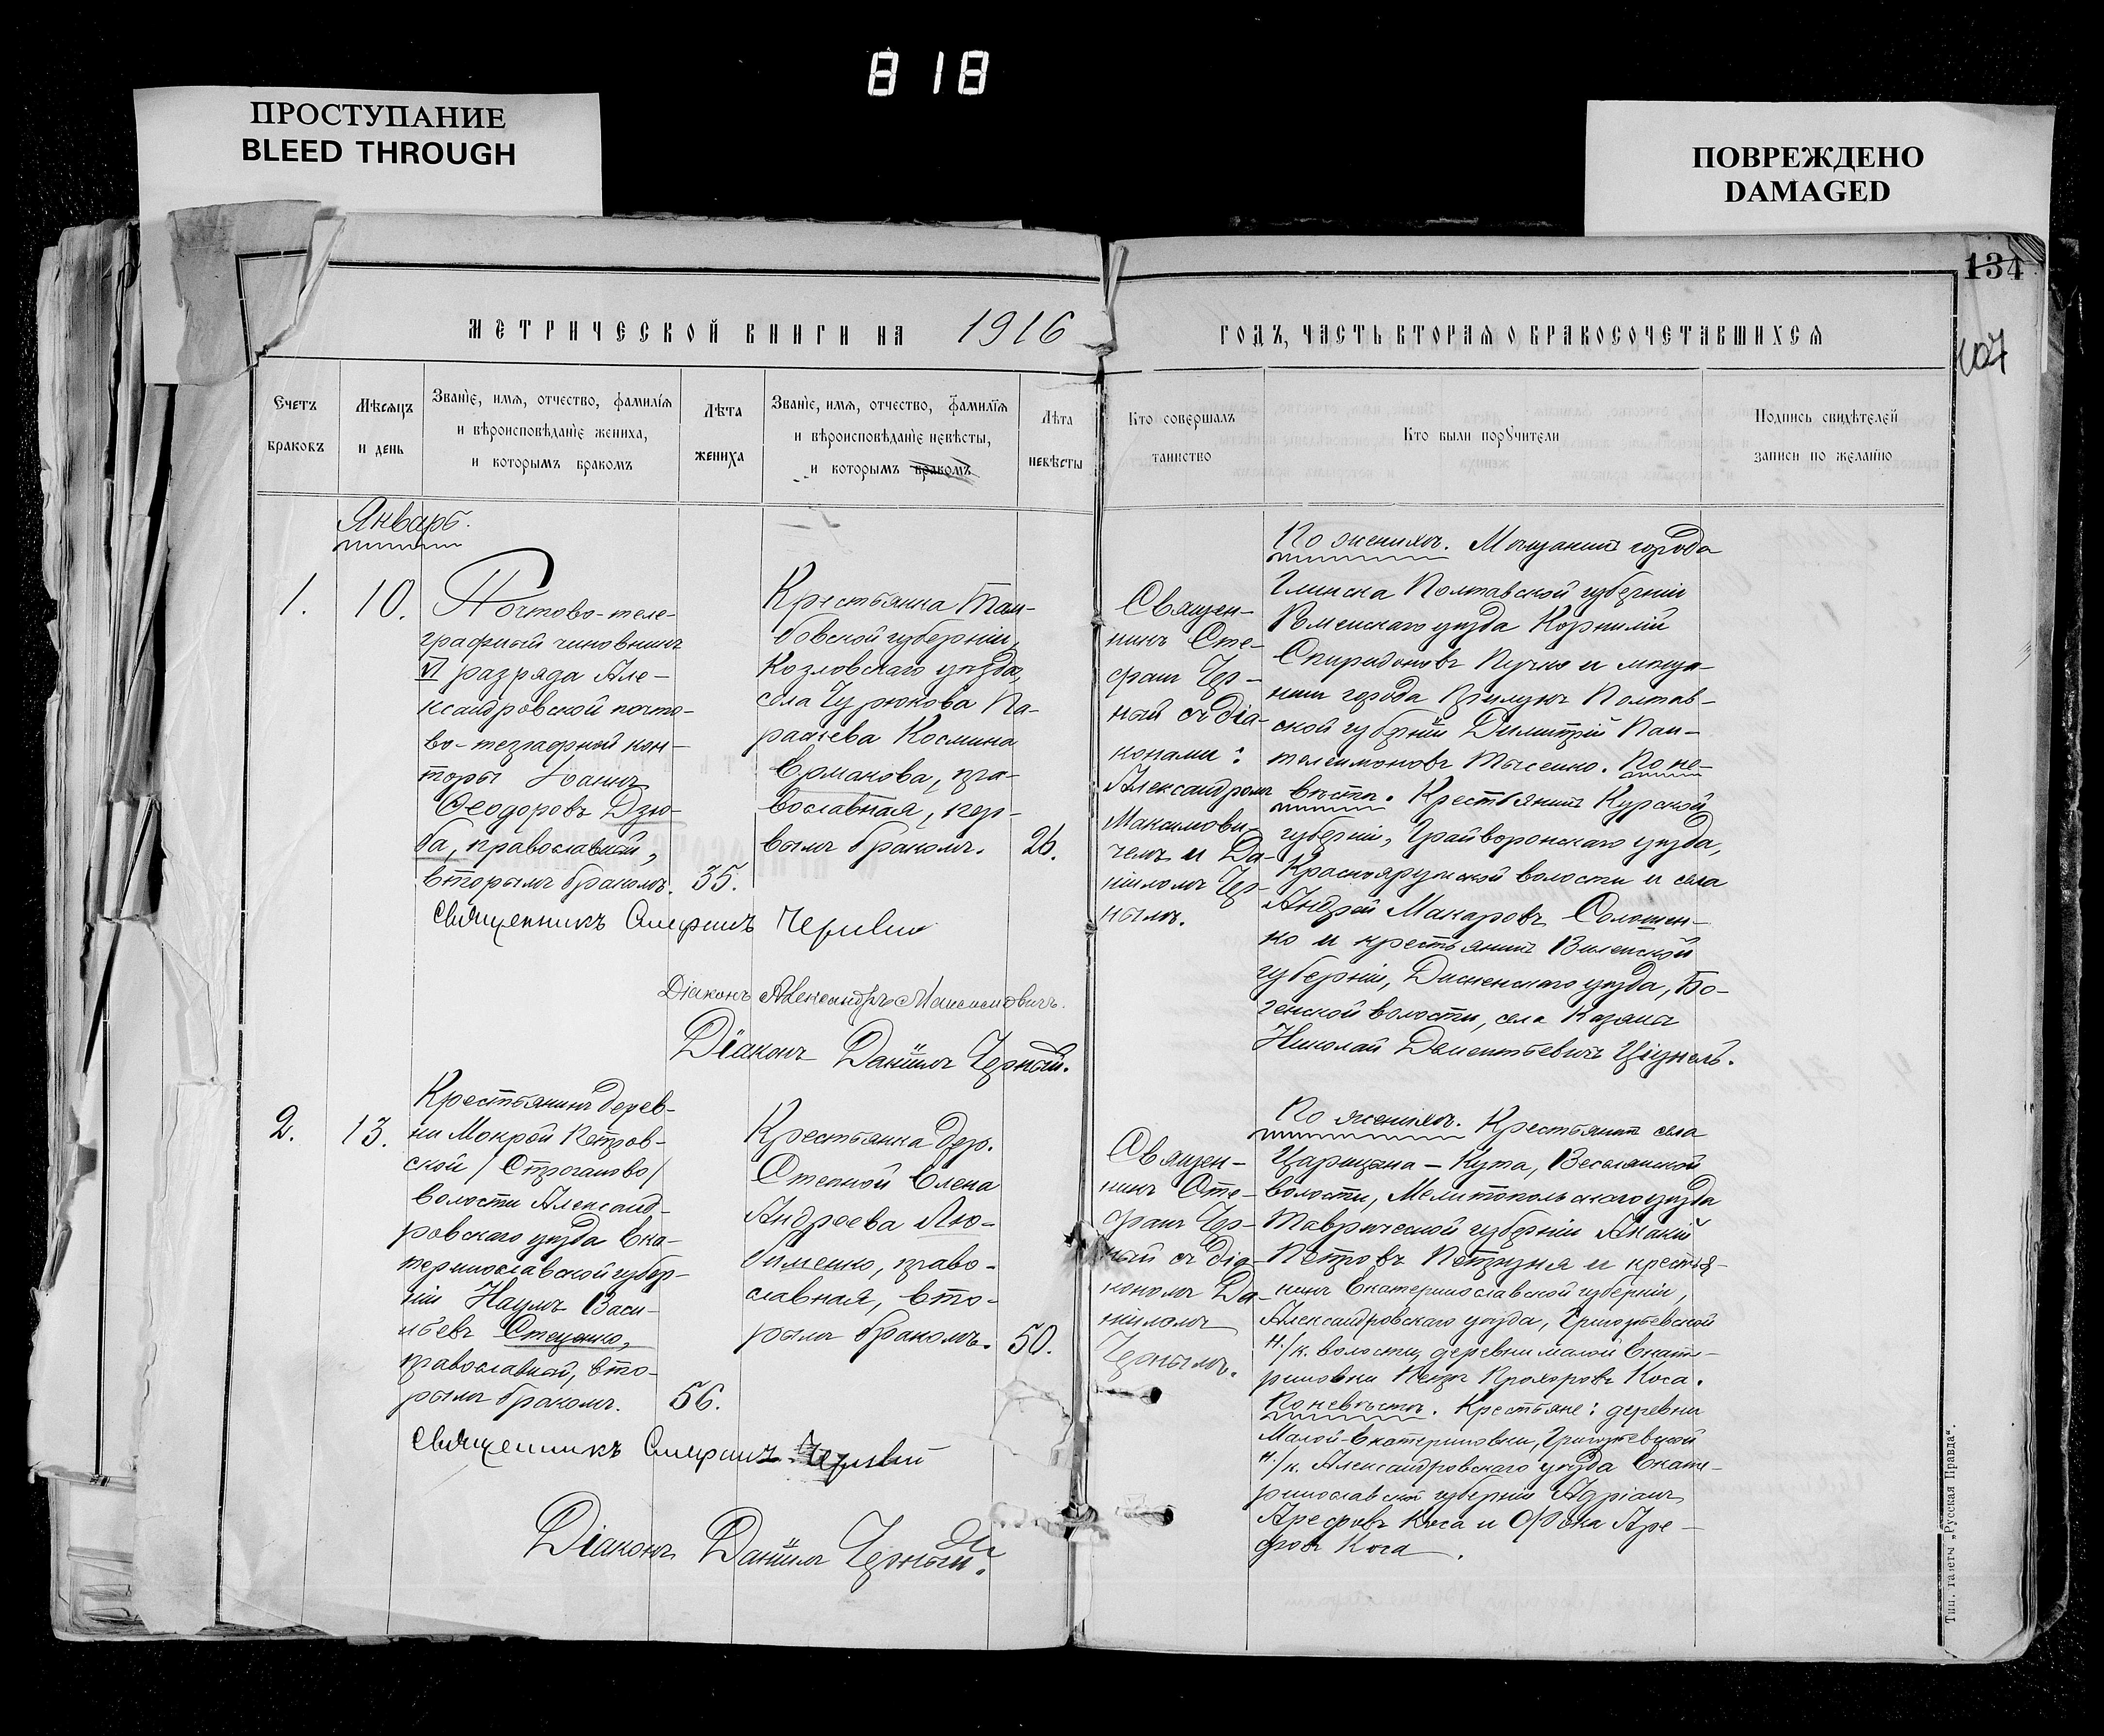 818
ПРОСТУПАНИЕ
BLEED THROUGH
ПОВРЕЖДЕНО
DAMAGED
134
107
МЕТРИЧЕСКОЙ КНИГИ НА 1916
ГОДЪ, ЧАСТЬ ВТОРАЯ О БРАКОСОЧЕТАВШИХСЯ
Счетъ
браковъ
Мѣсяцъ
и день
Званіе, имя, отчество, фамилія
и вѣроисповѣданіе жениха,
и которымъ бракомъ
Лѣта
жениха
Званіе, имя, отчество, фамилія
и вѣроисповѣданіе невѣсты,
и которымъ бракомъ
Лѣта
невѣсты
Кто совершалъ
таинство
Кто были поручители
Подпись свидѣтелей
записи по желанію
Январь.
1.
10.
Почтово-теле-
графный чиновникъ
VI разряда Але-
ксандровской почто-
во-телеграфной кон-
торы Іоаннъ
Ѳеодоровъ Дзю-
ба, православный,
вторымъ бракомъ.
35.
Крестьянка Там-
бовской губерніи,
Козловскаго уѣзда,
села Чурюкова Па-
раскева Космина
Ермакова, пра-
вославная, пер-
вымъ бракомъ.
26.
Священ-
никъ Сте-
фанъ Чер-
ный съ діа-
конами:
Александромъ
Максимови-
чемъ и Да-
ніиломъ Чер-
нымъ.
По женихѣ. Мѣщанинъ города
Глинска Полтавской губерніи
Роменскаго уѣзда Корнилій
Спиридоновъ Пучко и мѣща-
нинъ города Прилукъ Полтав-
ской губерніи Димитрій Пан-
телеимоновъ Тысенко. По не-
вѣстѣ. Крестьянинъ Курской
губерніи, Грайворонскаго уѣзда,
Краснояружской волости и села
Андрей Макаровъ Солошен-
ко и крестьянинъ Виленской
губерніи, Дисненскаго уѣзда, Бо-
гинской волости, села
Николай Дементьевичъ
Священникъ Стефанъ Черный
Діаконъ Александръ Максимовичъ.
Діаконъ Даніилъ Черный.
2.
13.
Крестьянинъ дерев-
ни Мокрой Петров-
ской /Строганово/
волости Александ-
ровскаго уѣзда Ека-
теринославской губер-
ніи Наумъ Васи-
льевъ Стеценко,
православный, вто-
рымъ бракомъ.
56.
Крестьянка дер.
Степной Елена
Андреева Лю-
бименко, право-
славная, вто-
рымъ бракомъ.
50.
Священ-
никъ Сте-
фанъ Чер-
ный съ діа-
кономъ Да-
ніиломъ
Чернымъ.
По женихѣ. Крестьянинъ села
Царицына-Кута, Веселянской
волости, Мелитопольскаго уѣзда
Таврической губерніи Акакій
Петровъ и крестья-
нинъ Екатеринославской губерніи,
Александровскаго уѣзда, Григорьевской
н./к. волости, деревни малой Екате-
риновки Петръ Прохоровъ Коса.
По невѣстѣ. Крестьяне: деревни
Малой-Екатериновки, Григорьевской
н./к. Александровскаго уѣзда Екате-
ринославской губерніи Адріанъ
Арефовъ Коса и Фока Аре-
фовъ Коса.
Священникъ Стефанъ Черный
Діаконъ Даніилъ Черный.
Тип. газеты „Русская Правда“.